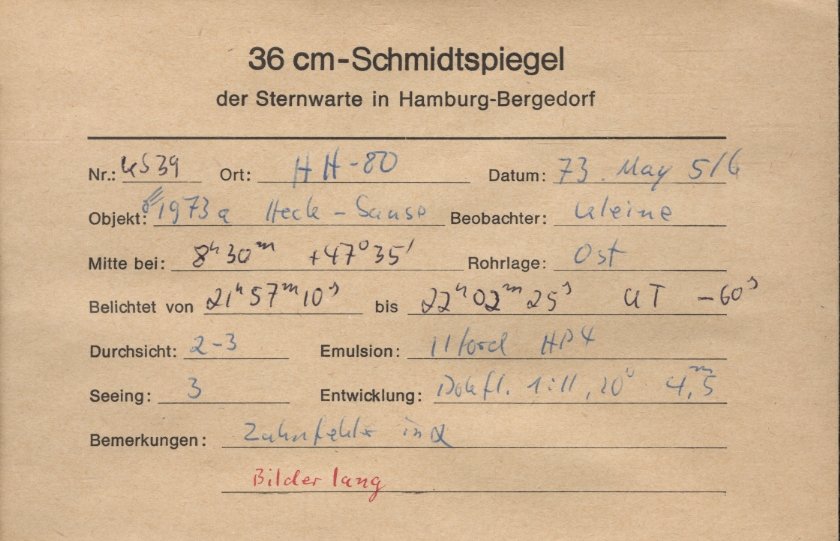 36 cm-Schmidtspiegel
der Sternwarte in Hamburg-Bergedorf
Nr.: 4539 Ort: HH-80 Datum: 73. May 5/6
Objekt: 1973a Heck-Sause Beobachter: Kleine
Mitte bei: 8ʰ30ᵐ +47°35' Rohrlage: Ost
Belichtet von 21ʰ57ᵐ10ˢ bis 22ʰ02ᵐ25ˢ UT -60ˢ
Durchsicht: 2-3 Emulsion: Ilford HP4
Seeing: 3 Entwicklung: 1:11, 20° 4,5ᵐ
Bemerkungen: Zahnfehler in α
Bilder lang